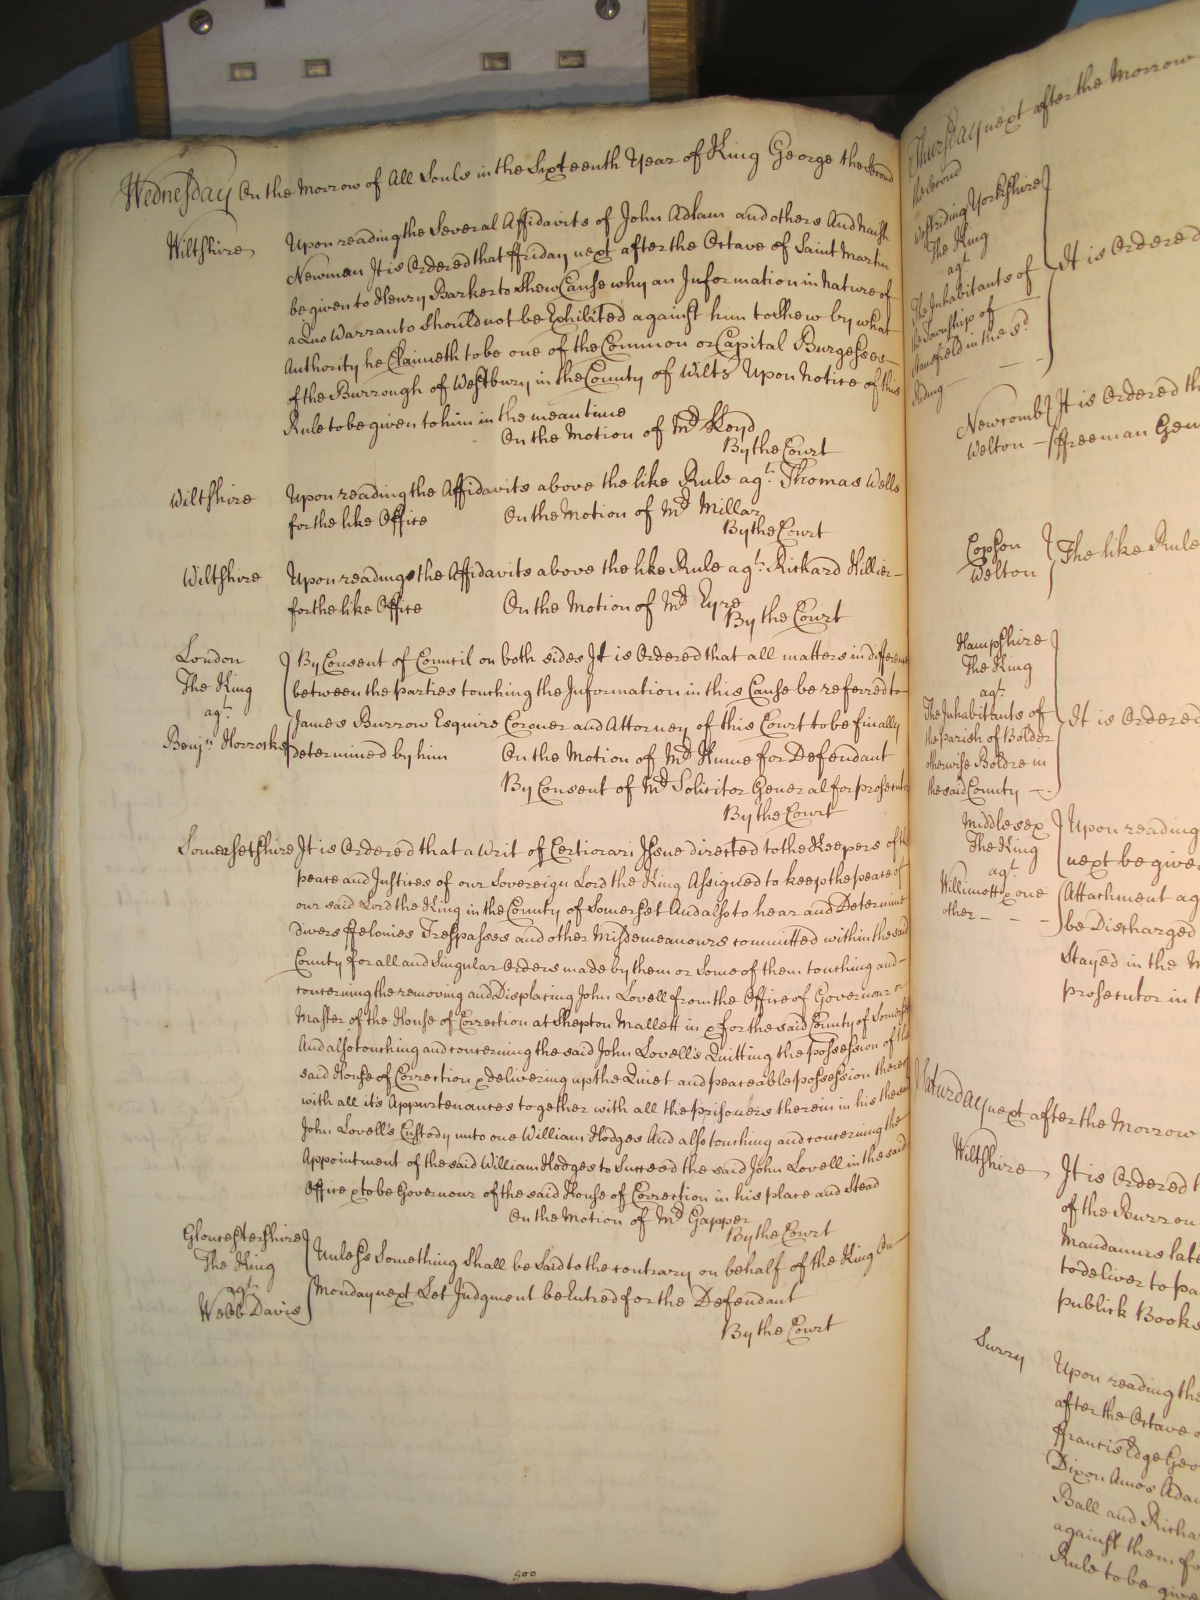 Wednesday On the Morrow of All Souls in the Sixteenth Year of King George the Second
Wiltshire Upon reading the Several Affidavits of John Adlam and others And
Newman It is Ordered that ffriday next after the Octave of Saint Martin
be given to Henry Barker to Shew Cause why an Information in Nature of
a Quo Warranto Should not be Exhibited against him to Shew by what
Authority he Claimeth to be one of the Common or Capital Burgesses
of the Burrough of Westbury in the County of Wilts Upon Notice of this
Rule to be given to him in the mean time
On the Motion of Mr Lloyd
By the Court
Wiltshire Upon reading the Affidavits above the like Rule agt. Thomas Wells
for the like Office On the Motion of Mr Millar
By the Court
Wiltshire Upon reading the Affidavits above the like Rule agt. Richard Hillier
for the like Office On the Motion of Mr Eyre
By the Court
London By Consent of Council on both sides It is Ordered that all matters in difference
The King between the parties touching the Information in this Cause be referred to
agt. James Burrow Esquire Coroner and Attorney of this Court to be finally
Benjn Horrocks determined by him On the Motion of Mr Hume for Defendant
By Consent of Mr Solicitor General for prosecutor
By the Court
Somersetshire It is Ordered that a Writ of Certiorari Issue directed to the Keepers of the
peace and Justices of our Sovereign Lord the King Assigned to keep the peace of
our said Lord the King in the County of Somerset And also to hear and Determine
divers ffelonies Trespasses and other Misdemeanours committed within the said
County for all and Singular Orders made by them or Some of them touching and
concerning the removing and Displacing John Lovell from the Office of Governour or
Master of the House of Correction at Shepton Mallett in & for the said County of Somerset
And also touching and concerning the said John Lovell's Quitting the possession of the
said House of Correction & delivering up the Quiet and peaceable possession thereof
with all it's Appurtenances together with all the prisoners therein in his the said
John Lovell's Custody unto one William Hodges And also touching and concerning the
Appointment of the said William Hodges to Succeed the said John Lovell in the said
Office & to be Governour of the said House of Correction in his place and Stead
On the Motion of Mr Gapper
By the Court
Gloucestershire
The King Unless Something Shall be Said to the contrary on behalf of the King On
agt. Monday next Let Judgment be Entred for the Defendant
Webb Davis
By the Court
500
Thursday next after the Morrow
the Second
Westriding Yorkshire
The King
agt.
The Inhabitants of It is Ordered
the Township of
Stansfield in the sd.
Riding
Newcomb It is Ordered th
Welton ffreeman Gen
Copson
Welton The like Rule
Hampshire
The King
agt.
The Inhabitants of It is Ordered
the parish of Bolder
otherwise Boldre in
the said County
Middlesex Upon reading
The King next be given
agt.
Willimott & one Attachment ag
other be Discharged
Stayed in the M
prosecutor in t
Saturday next after the Morrow
Wiltshire It is Ordered t
of the Burrou
Mandamus late
to deliver to pa
publick Books
Surry Upon reading the
after the Octave o
ffrancis Edge Geo
Dixon Amos Adam
Ball and Richa
against them fo
Rule to be give